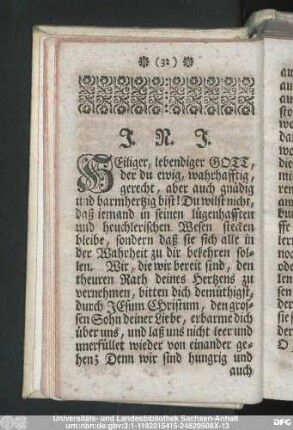 (32)
J. N. J.
HEiliger, lebendiger GOTT,
der du ewig, wahrhafftig,
gerecht, aber auch gnädig
und barmhertzig bist! Du wilst nicht,
daß iemand in seinen lügenhafften
und heuchlerischen Wesen stecken
bleibe, sondern daß sie sich alle in
der Wahrheit zu dir bekehren sol-
len. Wir, die wir bereit sind, den
theuren Rath deines Hertzens zu
vernehmen, bitten dich demüthigst,
durch JEsum Christum, den gros-
sen Sohn deiner Liebe, erbarme dich
über uns, und laß uns nicht leer und
unerfüllet wieder von einander ge-
hen; Denn wir sind hungrig und
auch
Universitäts- und Landesbibliothek Sachsen-Anhalt
urn:nbn:de:gbv:3:1-1192015415-24829508X-13
DFG